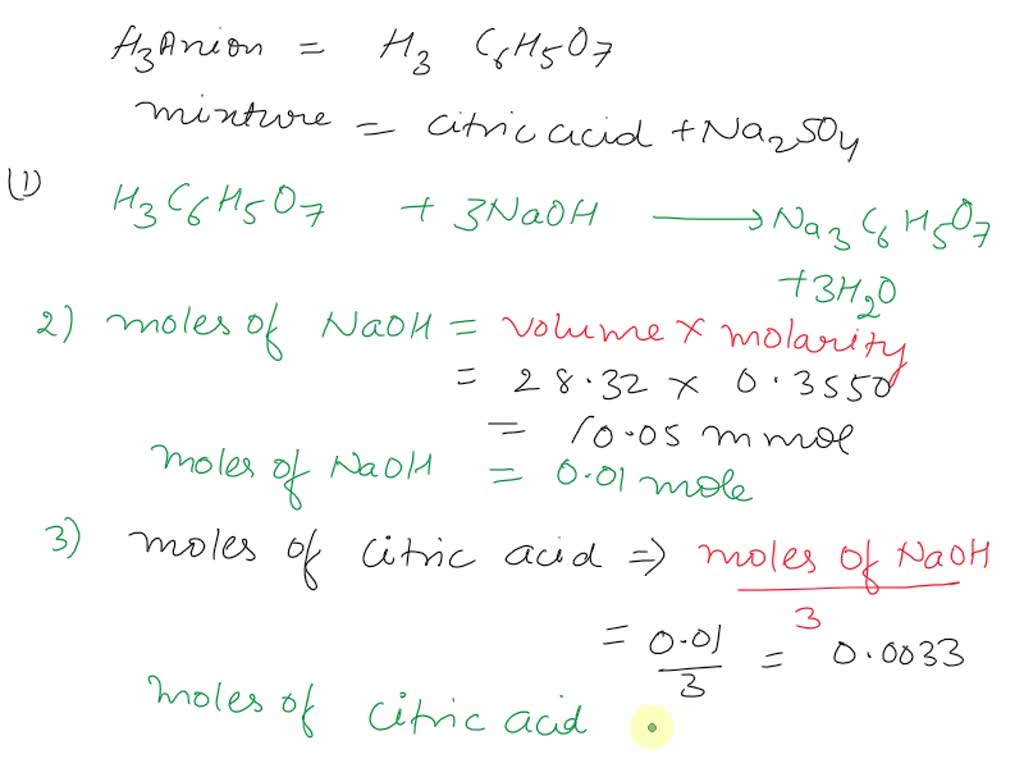 H3Anion = H3 C6H5O7
mixture = citric acid + Na2SO4
(1) H3C6H5O7 + 3NaOH ⟶ Na3C6H5O7
+ 3H2O
2) moles of NaOH = volume × molarity
= 28.32 × 0.3550
= 10.05 mmol
moles of NaOH = 0.01 mole
3) moles of citric acid ⇒ moles of NaOH
3
= 0.01 = 0.0033
3
moles of citric acid